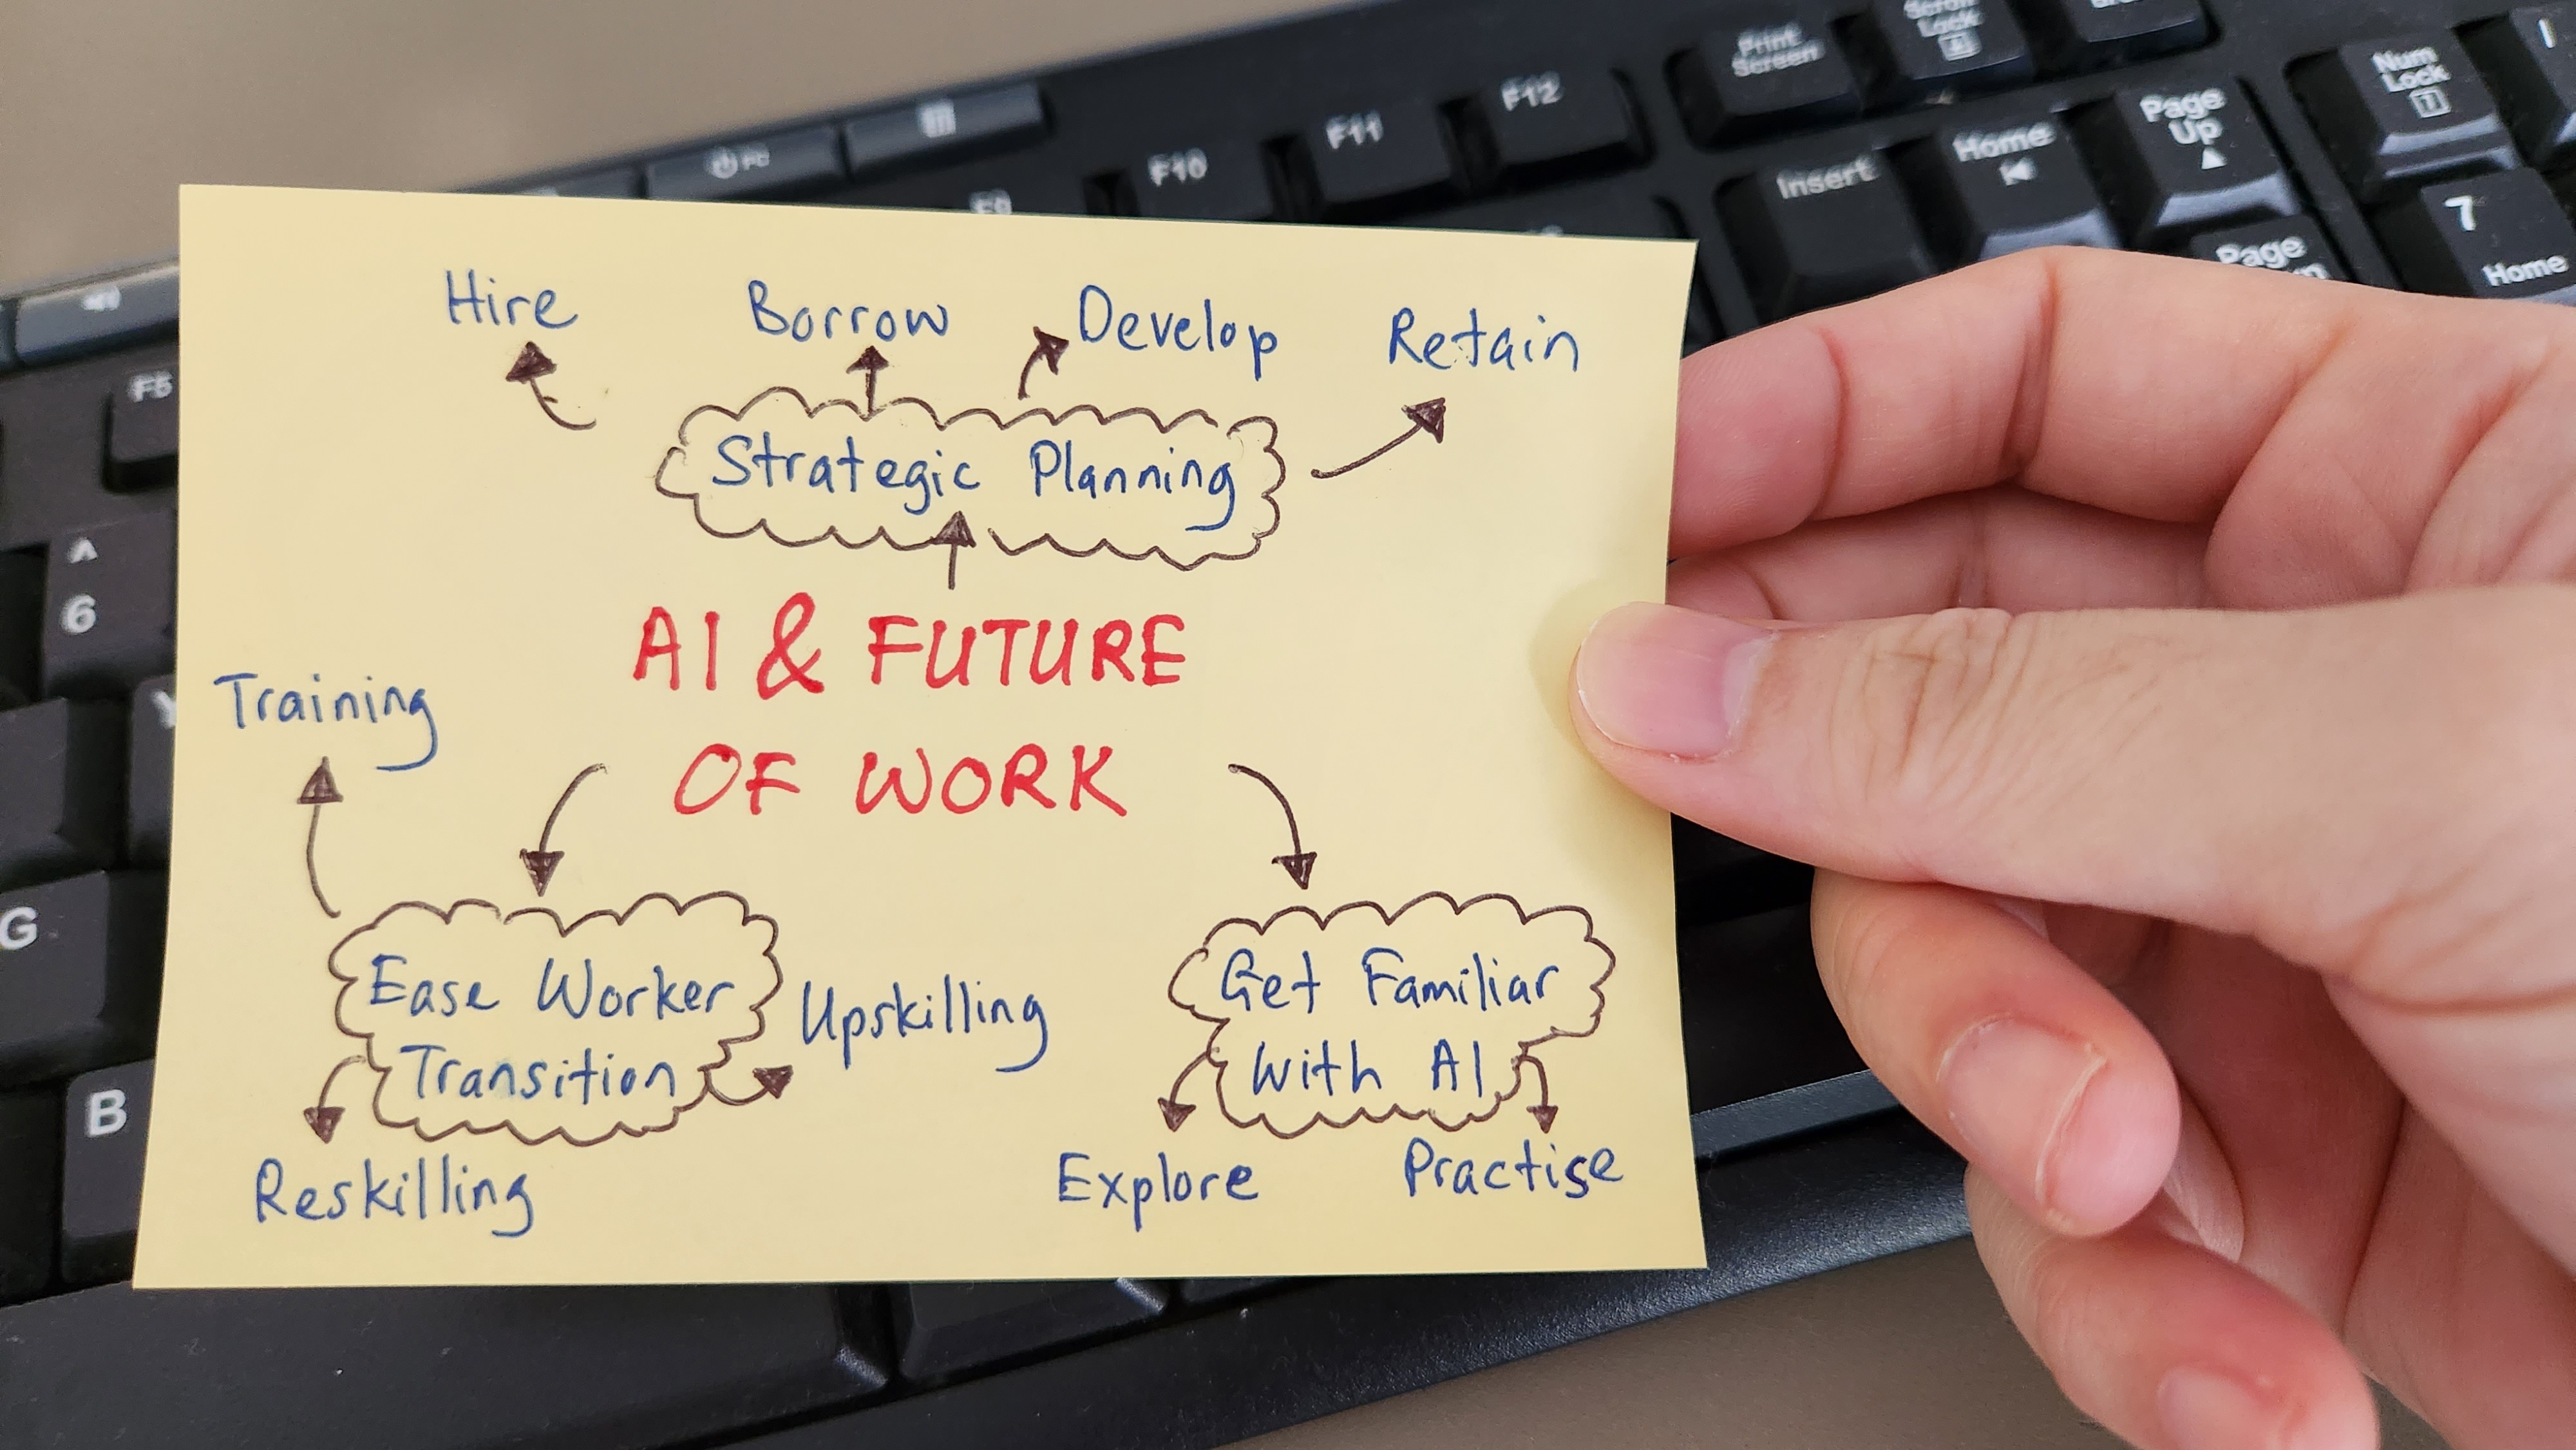 Print
Screen
Scroll
Lock
Num
Lock
F12
F11
F10
F9
PC
Page
Up
Home
Insert
7
Home
Page
F5
6
G
B
Hire
Borrow
Develop
Retain
Strategic Planning
AI & FUTURE
OF WORK
Training
Ease Worker
Transition
Upskilling
Reskilling
Get Familiar
With AI
Explore
Practise